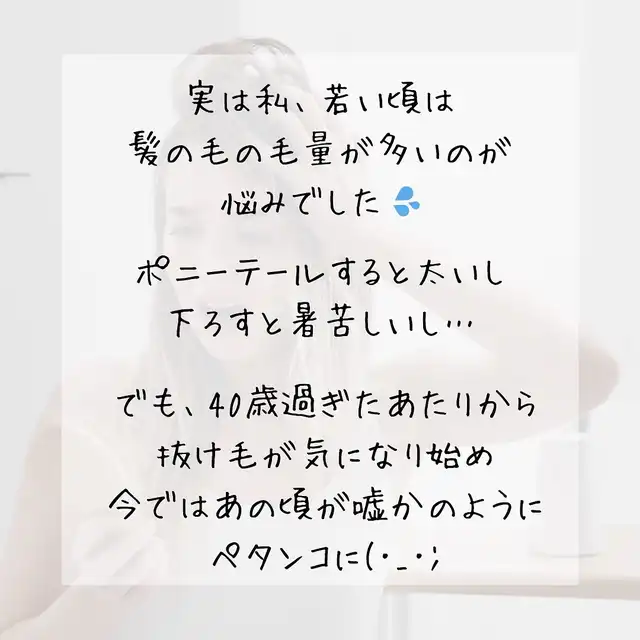 実は私、若い頃は
髪の毛の毛量が多いのが
悩みでした💦
ポニーテールすると太いし
下ろすと暑苦しいし…
でも、40歳過ぎたあたりから
抜け毛が気になり始め
今ではあの頃が嘘かのように
ペタンコに(･_･;